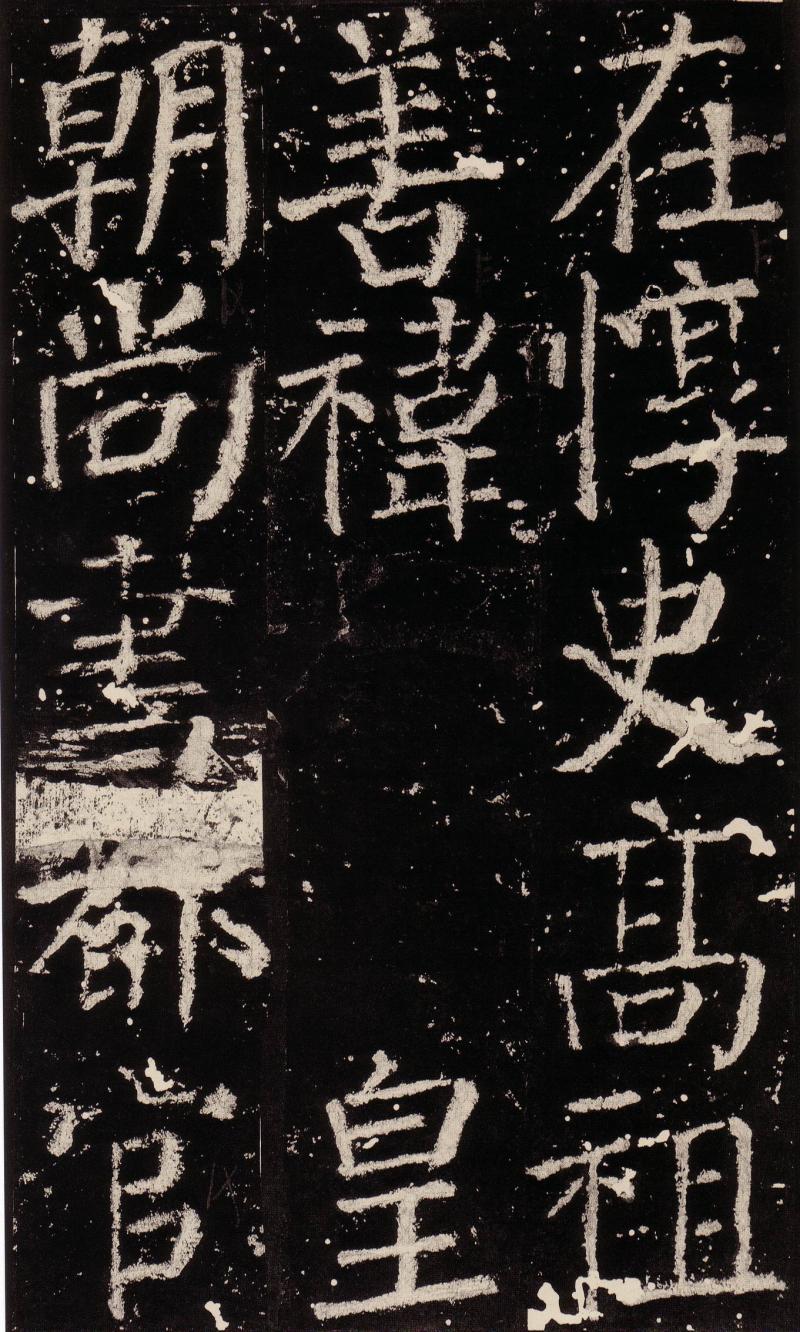 在惇史高祖
善禕 皇
朝尚書都官